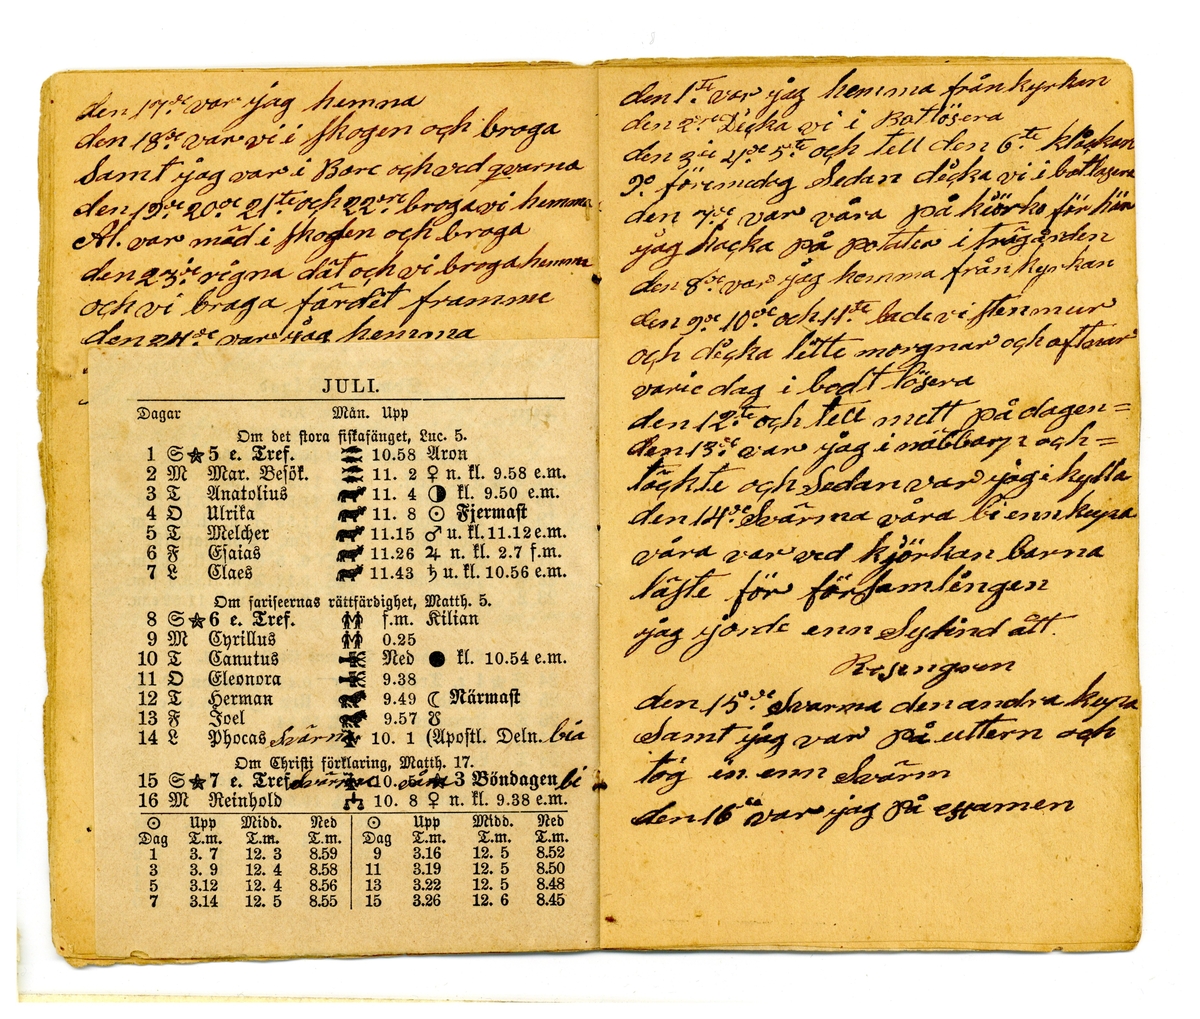 den 17de var jag hemma
den 18de var vi i skogen och broga
Samt jag var i Bore och ved qvarna
den 19de 20de 21te och 22dre broga vi hemma
Al. var mäd i skogen och broga
den 23de rigna dät och vi broga hemma
och vi braga färdet framme
den 24de var jag hemma
JULI.
Dagar Mån. Upp
Om det stora fiskafänget, Luc. 5.
1 S 5 e. Tref. 10.58 Aron
2 M Mar. Besök. 11. 2 ♀ n. kl. 9.58 e.m.
3 T Anatolius 11. 4 ◑ kl. 9.50 e.m.
4 O Ulrika 11. 8 ⊙ Fjermast
5 T Melcher 11.15 ♂ u. kl. 11.12 e.m.
6 F Esaias 11.26 ♃ n. kl. 2.7 f.m.
7 L Claes 11.43 ♄ u. kl. 10.56 e.m.
Om fariseernas rättfärdighet, Matth. 5.
8 S 6 e. Tref. f.m. Kilian
9 M Cyrillus 0.25
10 T Canutus Ned ● kl. 10.54 e.m.
11 O Eleonora 9.38
12 T Herman 9.49 ☾ Närmast
13 F Joel 9.57 ☋
14 L Phocas Svärm 10. 1 (Apostl. Deln. bia
Om Christi förklaring, Matth. 17.
15 S 7 e. Tref. Svärma 10. 5 våra 3 Böndagen bi
16 M Reinhold 10. 8 ♀ n. kl. 9.38 e.m.
⊙ Upp Midd. Ned ⊙ Upp Midd. Ned
Dag T.m. T.m. T.m. Dag T.m. T.m. T.m.
1 3. 7 12. 3 8.59 9 3.16 12. 5 8.52
3 3. 9 12. 4 8.58 11 3.19 12. 5 8.50
5 3.12 12. 4 8.56 13 3.22 12. 5 8.48
7 3.14 12. 5 8.55 15 3.26 12. 6 8.45
den 1te var jag hemma från kyrkan
den 2dre Dicka vi i Botlösera
den 3je 4de 5te och tell den 6te klåckan
9o föremedag Sedan dicka vi i botlösera
den 7de var våra på kiörko för hän
jag hacka på potater i trägården
den 8de var jag hemma från kyrkan
den 9de 10de och 11te lade vi stenmur
och dicka litte morgnar och aftnar
varie dag i bodt lösera
den 12te och tell mett på dagen=
den 13de var jag i nätbarp och=
töckte och Sedan var jag i kylla
den 14de Svärma våra bi enn kupa
våra var ved kjörkan barna
läste för församlingen
jag jorde enn Sylind ått.
Rosengren
den 15de Svarma den andra kupa
Samt jag var på uttern och
tog in enn Svärm
den 16de var jag på examen